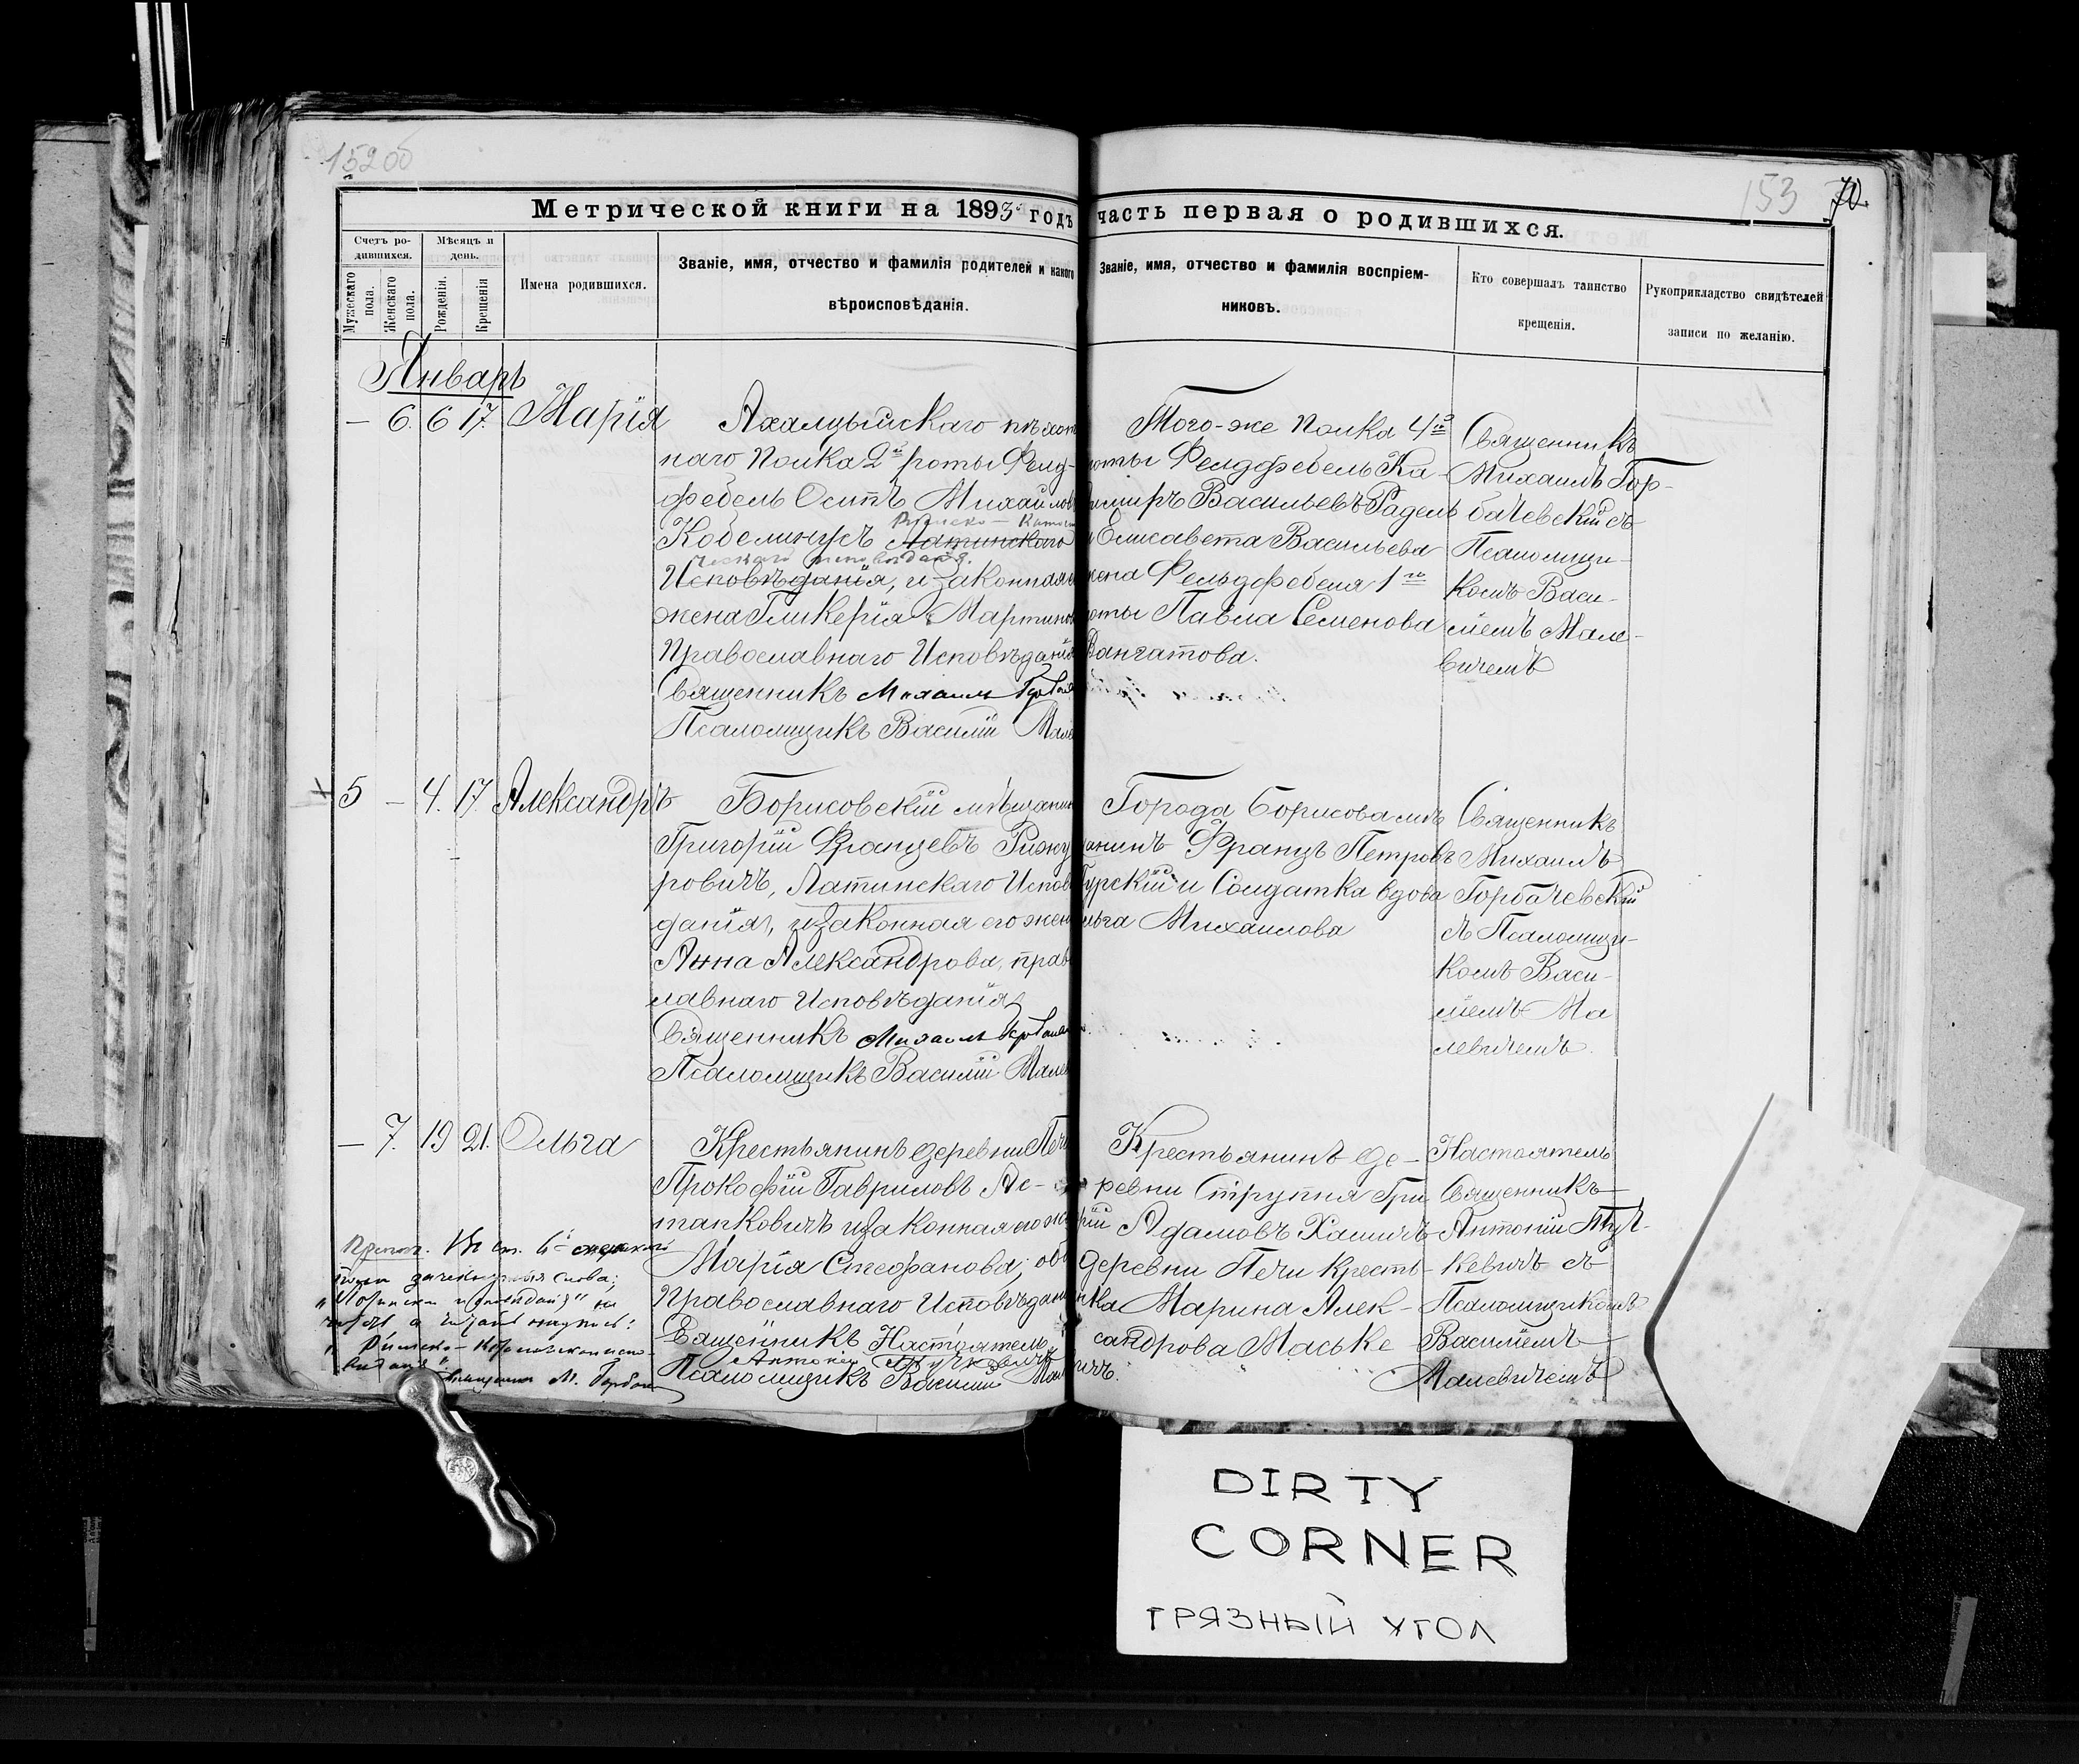 152 об
153 70.
Метрической книги на 1893 годъ
часть первая о родившихся.
Счетъ ро-
дившихся.
Мужескаго пола.
Женскаго пола.
Мѣсяцъ и
день.
Рожденія.
Крещенія
Имена родившихся.
Званіе, имя, отчество и фамилія родителей и какого
вѣроисповѣданія.
Званіе, имя, отчество и фамилія воспріем-
никовъ.
Кто совершалъ таинство
крещенія.
Рукоприкладство свидѣтелей
записи по желанію.
Январь
— 6. 6 17. Марія
Ахалцыйскаго пѣхот
наго Полка 2й роты Фелд-
фебель Осипъ Михайлов
Римско-Катол
Кобелинусъ Латинскаго
ческаго исповѣданія.
Исповѣданія, и законная
жена Гликерія Мартинов
Православнаго Исповѣданія
Священникъ Михаилъ
Псаломщикъ Василій Мале
Того-же Полка 4й
роты Фелдфебель Ка-
зимиръ Васильевъ Радель
и Елисавета Васильева
жена Фельдфебеля 1го
роты Павла Семенова
Вангатова.
Священникъ
Михаилъ Гор-
бачевскій съ
Псаломщи-
комъ Васи-
ліемъ Мале-
вичемъ
5 — 4. 17. Александръ
Борисовскій мѣщанин
Григорій Францевъ
ровичъ, Латинскаго Испов
данія, и законная его жен
Анна Александрова, прав
лавнаго Исповѣданія
Священникъ Михаилъ
Псаломщикъ Василій Мале
Города Борисова мѣ
щанинъ Францъ Петровъ
Гурскій и Солдатка вдова
Ольга Михаилова
Священникъ
Михаилъ
Горбачевскій
съ Псаломщи-
комъ Васи-
ліемъ Ма
левичемъ.
— 7. 19 21. Ольга
Крестьянинъ деревни Печи
Прокофій Гавриловъ Ас-
тапковичъ и законная его же
Марія Стефанова; об
Православнаго Исповѣдан
Священникъ Настоятель
Антоній
Псаломщикъ Василій Мал
евичъ.
Крестьянинъ де-
ревни Струпня Гри
горій Адамовъ Хаминъ
деревни Печи кресть-
янка Марина Алек-
сандрова Маське
Настоятель
Священникъ
Антоній
кевичъ съ
Псаломщикомъ
Василіемъ
Малевичемъ
Въ ст. 6й женскаго
пола зачеркнутыя слова;
"Римско-
Священникъ М. Горбач
DIRTY
CORNER
ГРЯЗНЫЙ УГОЛ